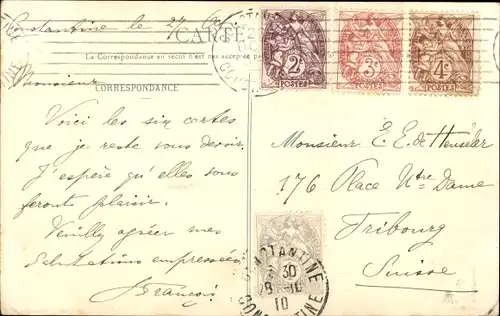 Constantine le 27
CARTE
La Correspondance au recto n'est pas acceptée
Monsieur
CORRESPONDANCE
Voici les six cartes
que je reste vous devoir.
J'espère qu'elles vous
feront plaisir.
Veuillez agréer mes
Salutations empressées
François
2c
POSTES
3c
POSTES
4c
POSTES
Monsieur E. E. de Henseler
176 Place Ntre Dame
Fribourg
Suisse
CONSTANTINE
30
10
CONSTANTINE